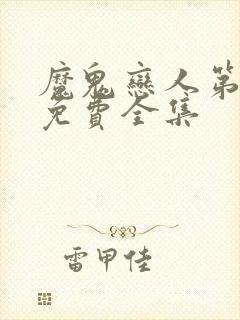 魔鬼戀人第
免費全集
雷甲佳